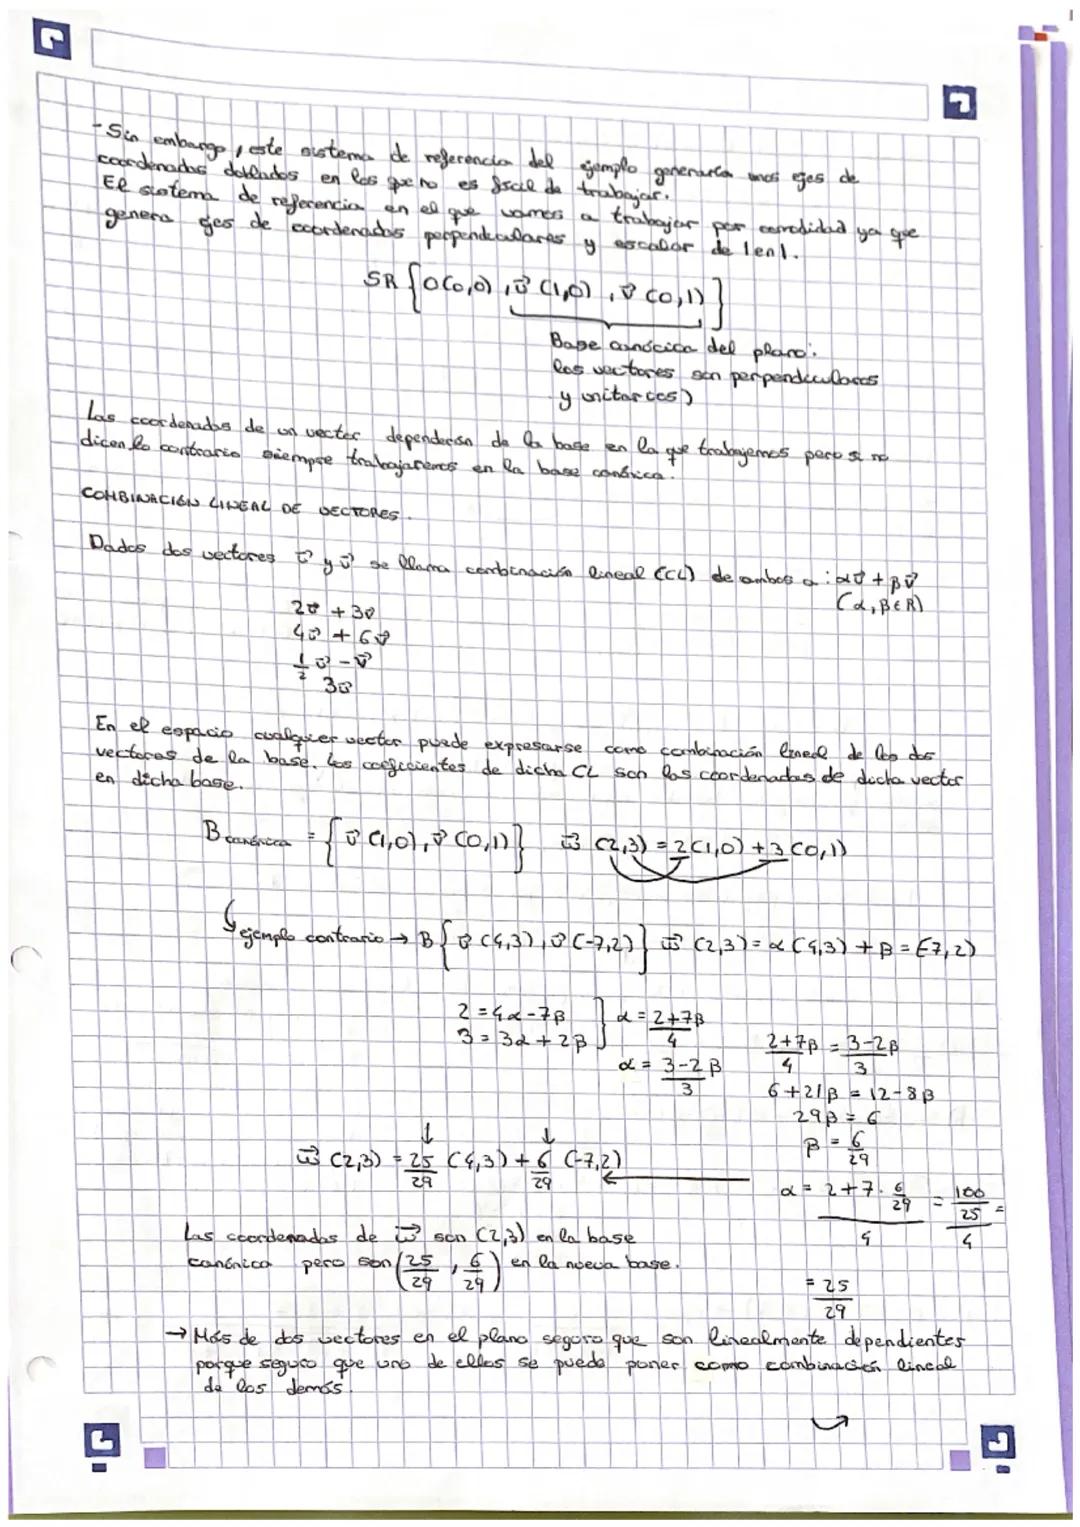 - Sin embargo, este sistema de referencia del ejemplo generaría unos ejes de
coordenadas doblados en los que no es fácil de trabajar.
El sistema de referencia en el que vamos a trabajar por comodidad ya que
genera ejes de coordenadas perpendiculares y escalar de 1 en 1.
SR {O(0,0), u⃗ (1,0), v⃗ (0,1)}
Base canócica del plano:
los vectores son perpendiculares
y unitarios)
Las coordenadas de un vector dependerán de la base en la que trabajemos pero si no
dicen lo contrario siempre trabajaremos en la base canónica.
COMBINACIÓN LINEAL DE VECTORES.
Dados dos vectores u⃗ y v⃗ se llama combinación lineal (CL) de ambos a: αu⃗ + βv⃗
(α, β ∈ R)
2u⃗ + 3v⃗
4u⃗ + 6v⃗
1/2 u⃗ - v⃗
3u⃗
En el espacio cualquier vector puede expresarse como combinación lineal de los dos
vectores de la base. Los coeficientes de dicha CL son las coordenadas de dicho vector
en dicha base.
B canónica = {u⃗ (1,0), v⃗ (0,1)} w⃗ (2,3) = 2(1,0) + 3(0,1)
ejemplo contrario → B {u⃗ (4,3), v⃗ (-7,2)} w⃗ (2,3) = α (4,3) + β = (-7,2)
2 = 4α - 7β
3 = 3α + 2β
α = 2+7β / 4
α = 3-2β / 3
2+7β / 4 = 3-2β / 3
6 + 21β = 12 - 8β
29β = 6
β = 6/29
w⃗ (2,3) = 25/29 (4,3) + 6/29 (-7,2)
α = 2+7· 6/29 / 4 = 100/25 / 4 =
= 25/29
Las coordenadas de w⃗ son (2,3) en la base
canónica pero son (25/29, 6/29) en la nueva base.
→ Más de dos vectores en el plano seguro que son linealmente dependientes
porque seguro que uno de ellos se puede poner como combinación lineal
de los demás.